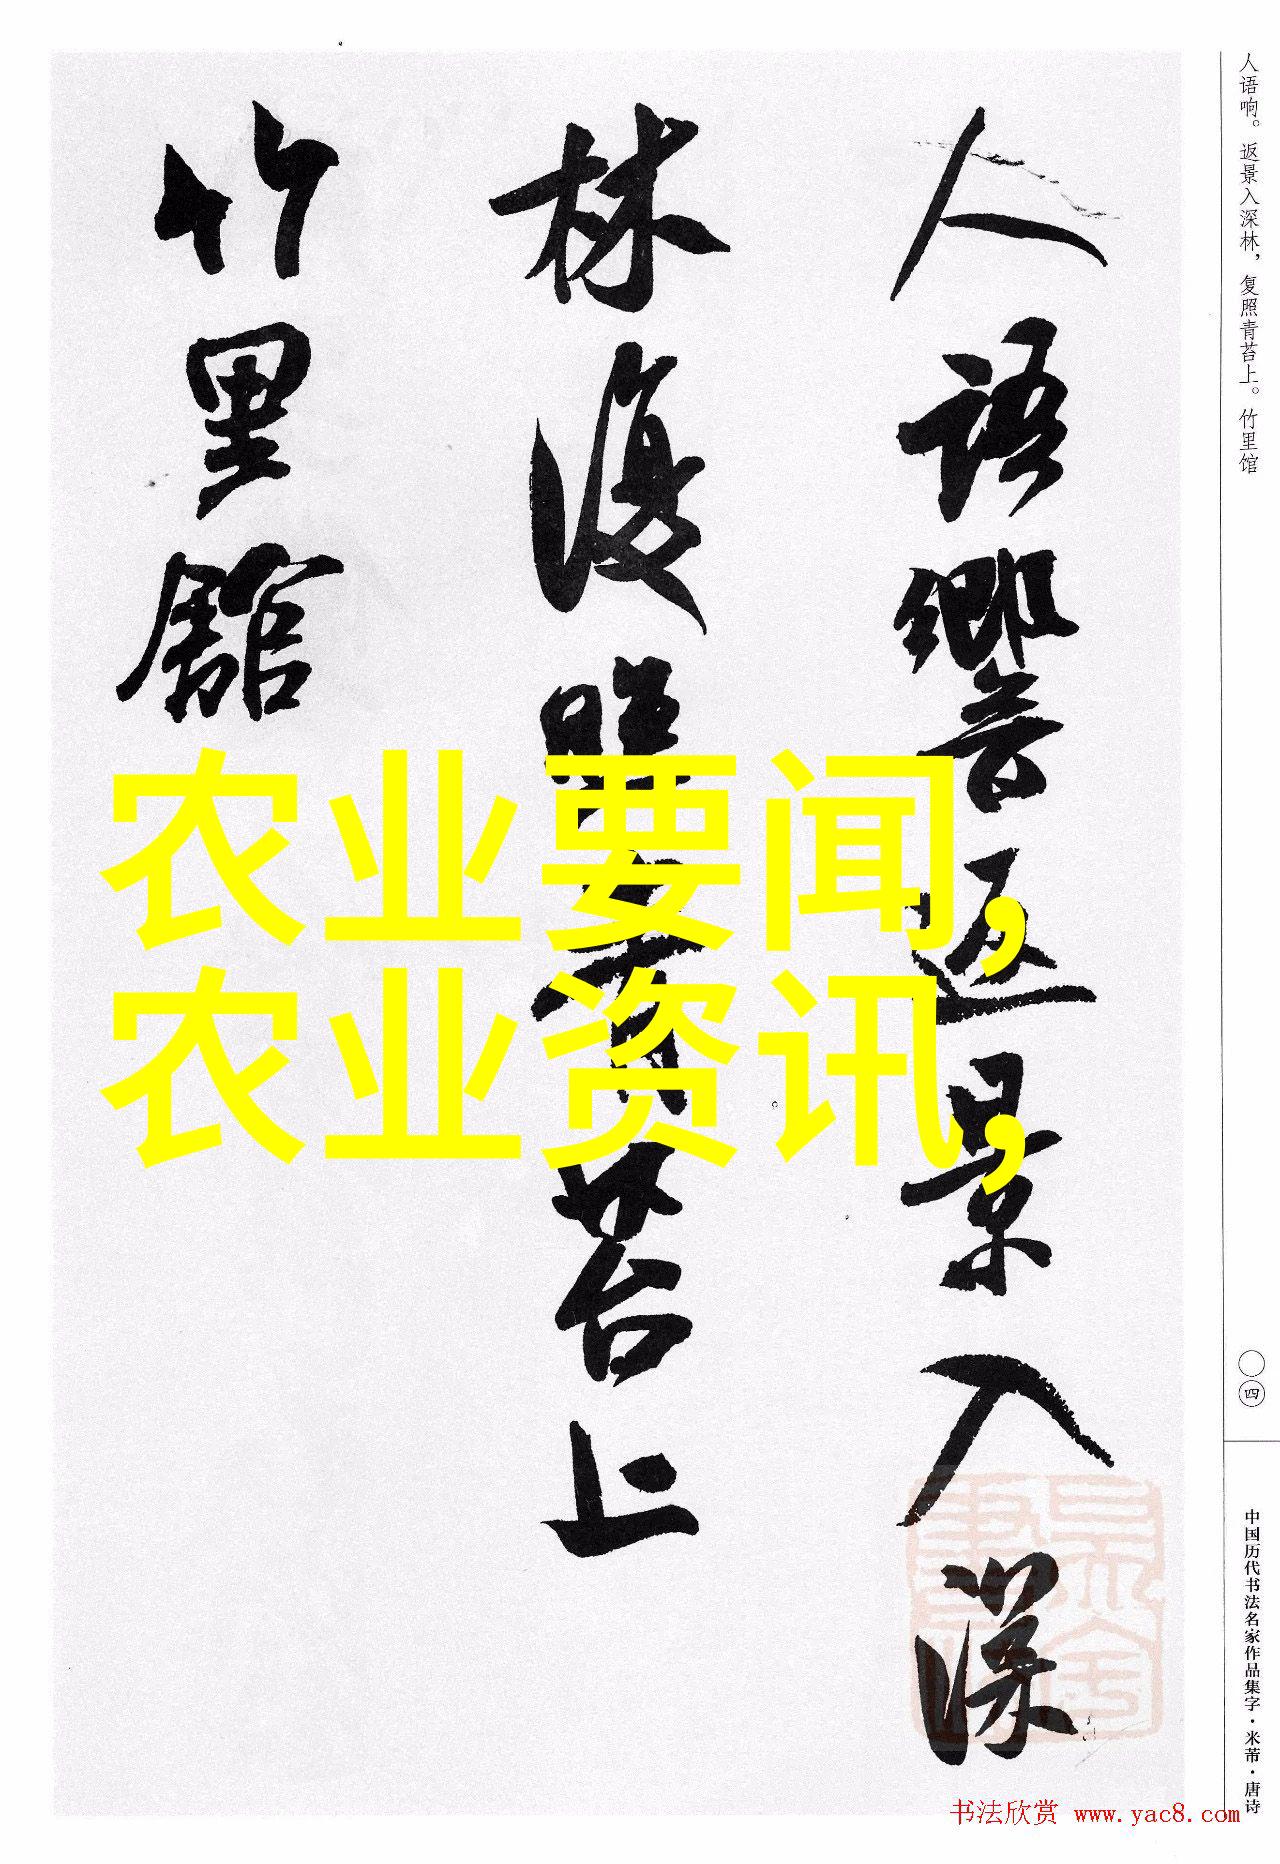 人语响。返景入深林，复照青苔上。竹里馆
人語響返景入深
林復照青苔上
竹里館
农业要闻,
农业资讯,
〇四
中国历代书法名家作品集字·米芾·唐诗
书法欣赏 www.yac8.com